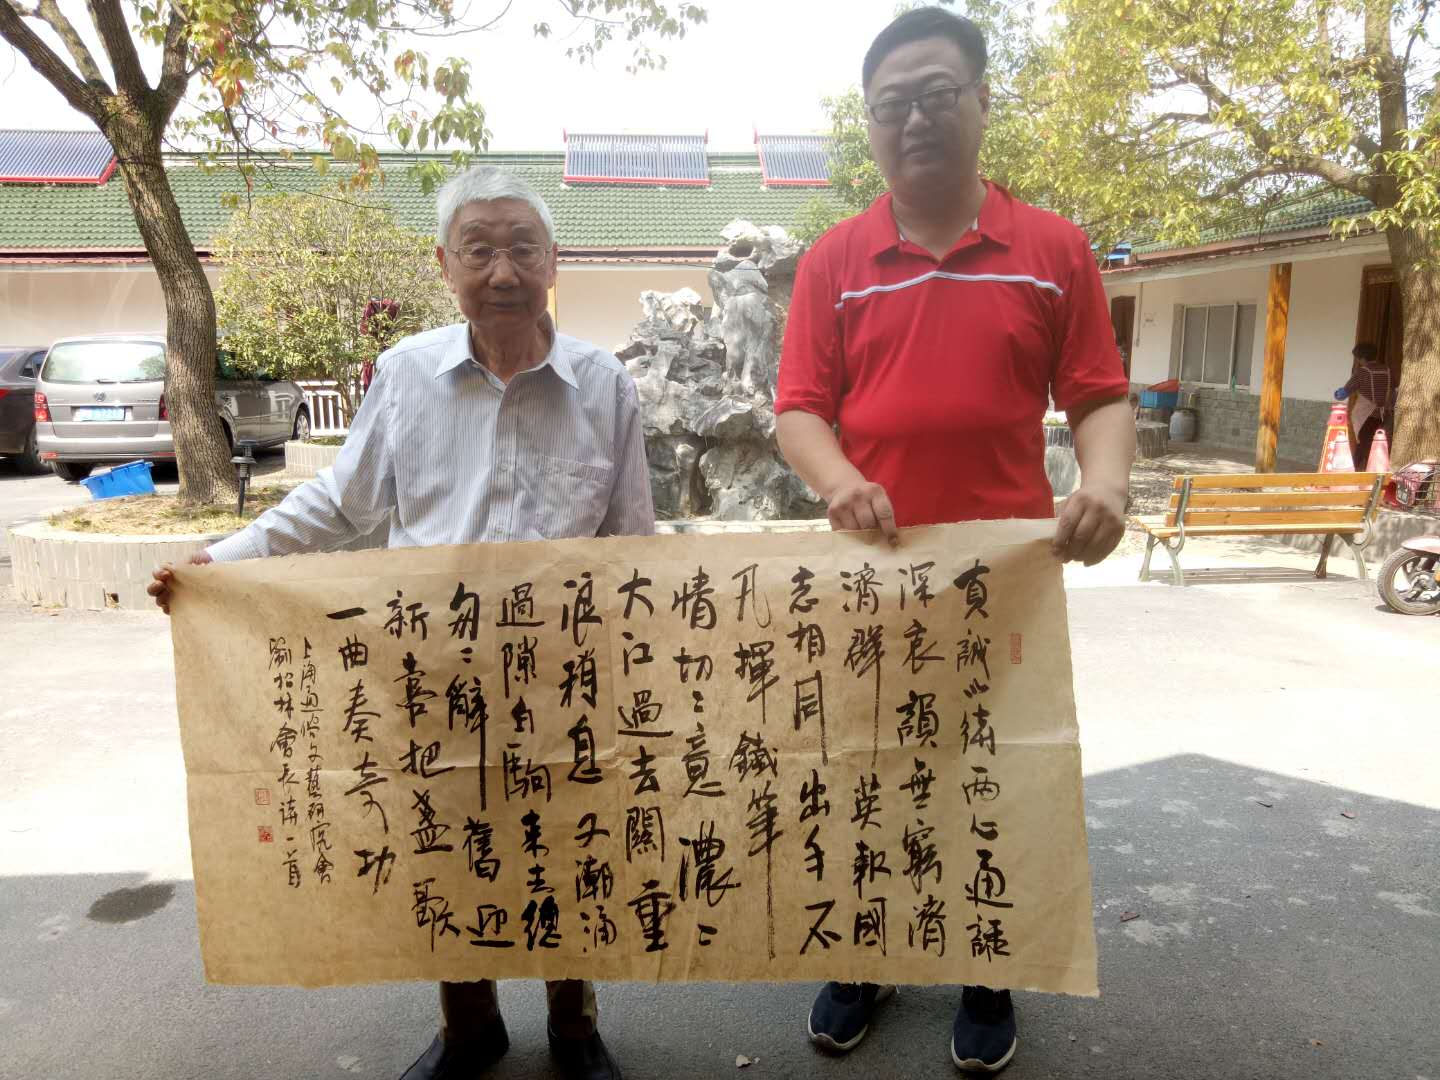 真誠以待两心通話
深哀韻無窮濟
濟群英報國
志相同出手不
凡揮鐵筆
情切〻意濃〻
大江過去關重
浪稍息又潮涌
過隙白駒来去總
匆〻辭舊迎
新喜把盞歌
一曲奏奇功
上海通俗文藝研究會
劉松林會長詩一首